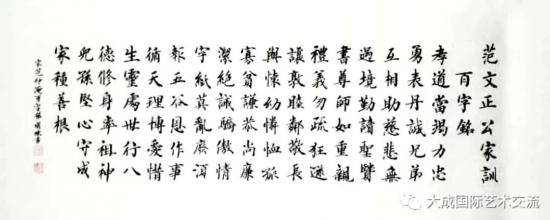 范文正公家訓
百字銘
孝道當竭力忠
勇表丹誠兄弟
互相助慈悲無
過境勤讀聖賢
書尊師如重親
禮義勿疏狂遜
讓敦睦鄰敬長
與懷幼憐恤孤
寡貧謙恭尚廉
潔絕誡驕傲情
字紙莫亂廢須
報五谷恩作事
循天理博愛惜
生靈處世行八
德修身率祖神
兒孫堅心守成
家種善根
大成国际艺术交流